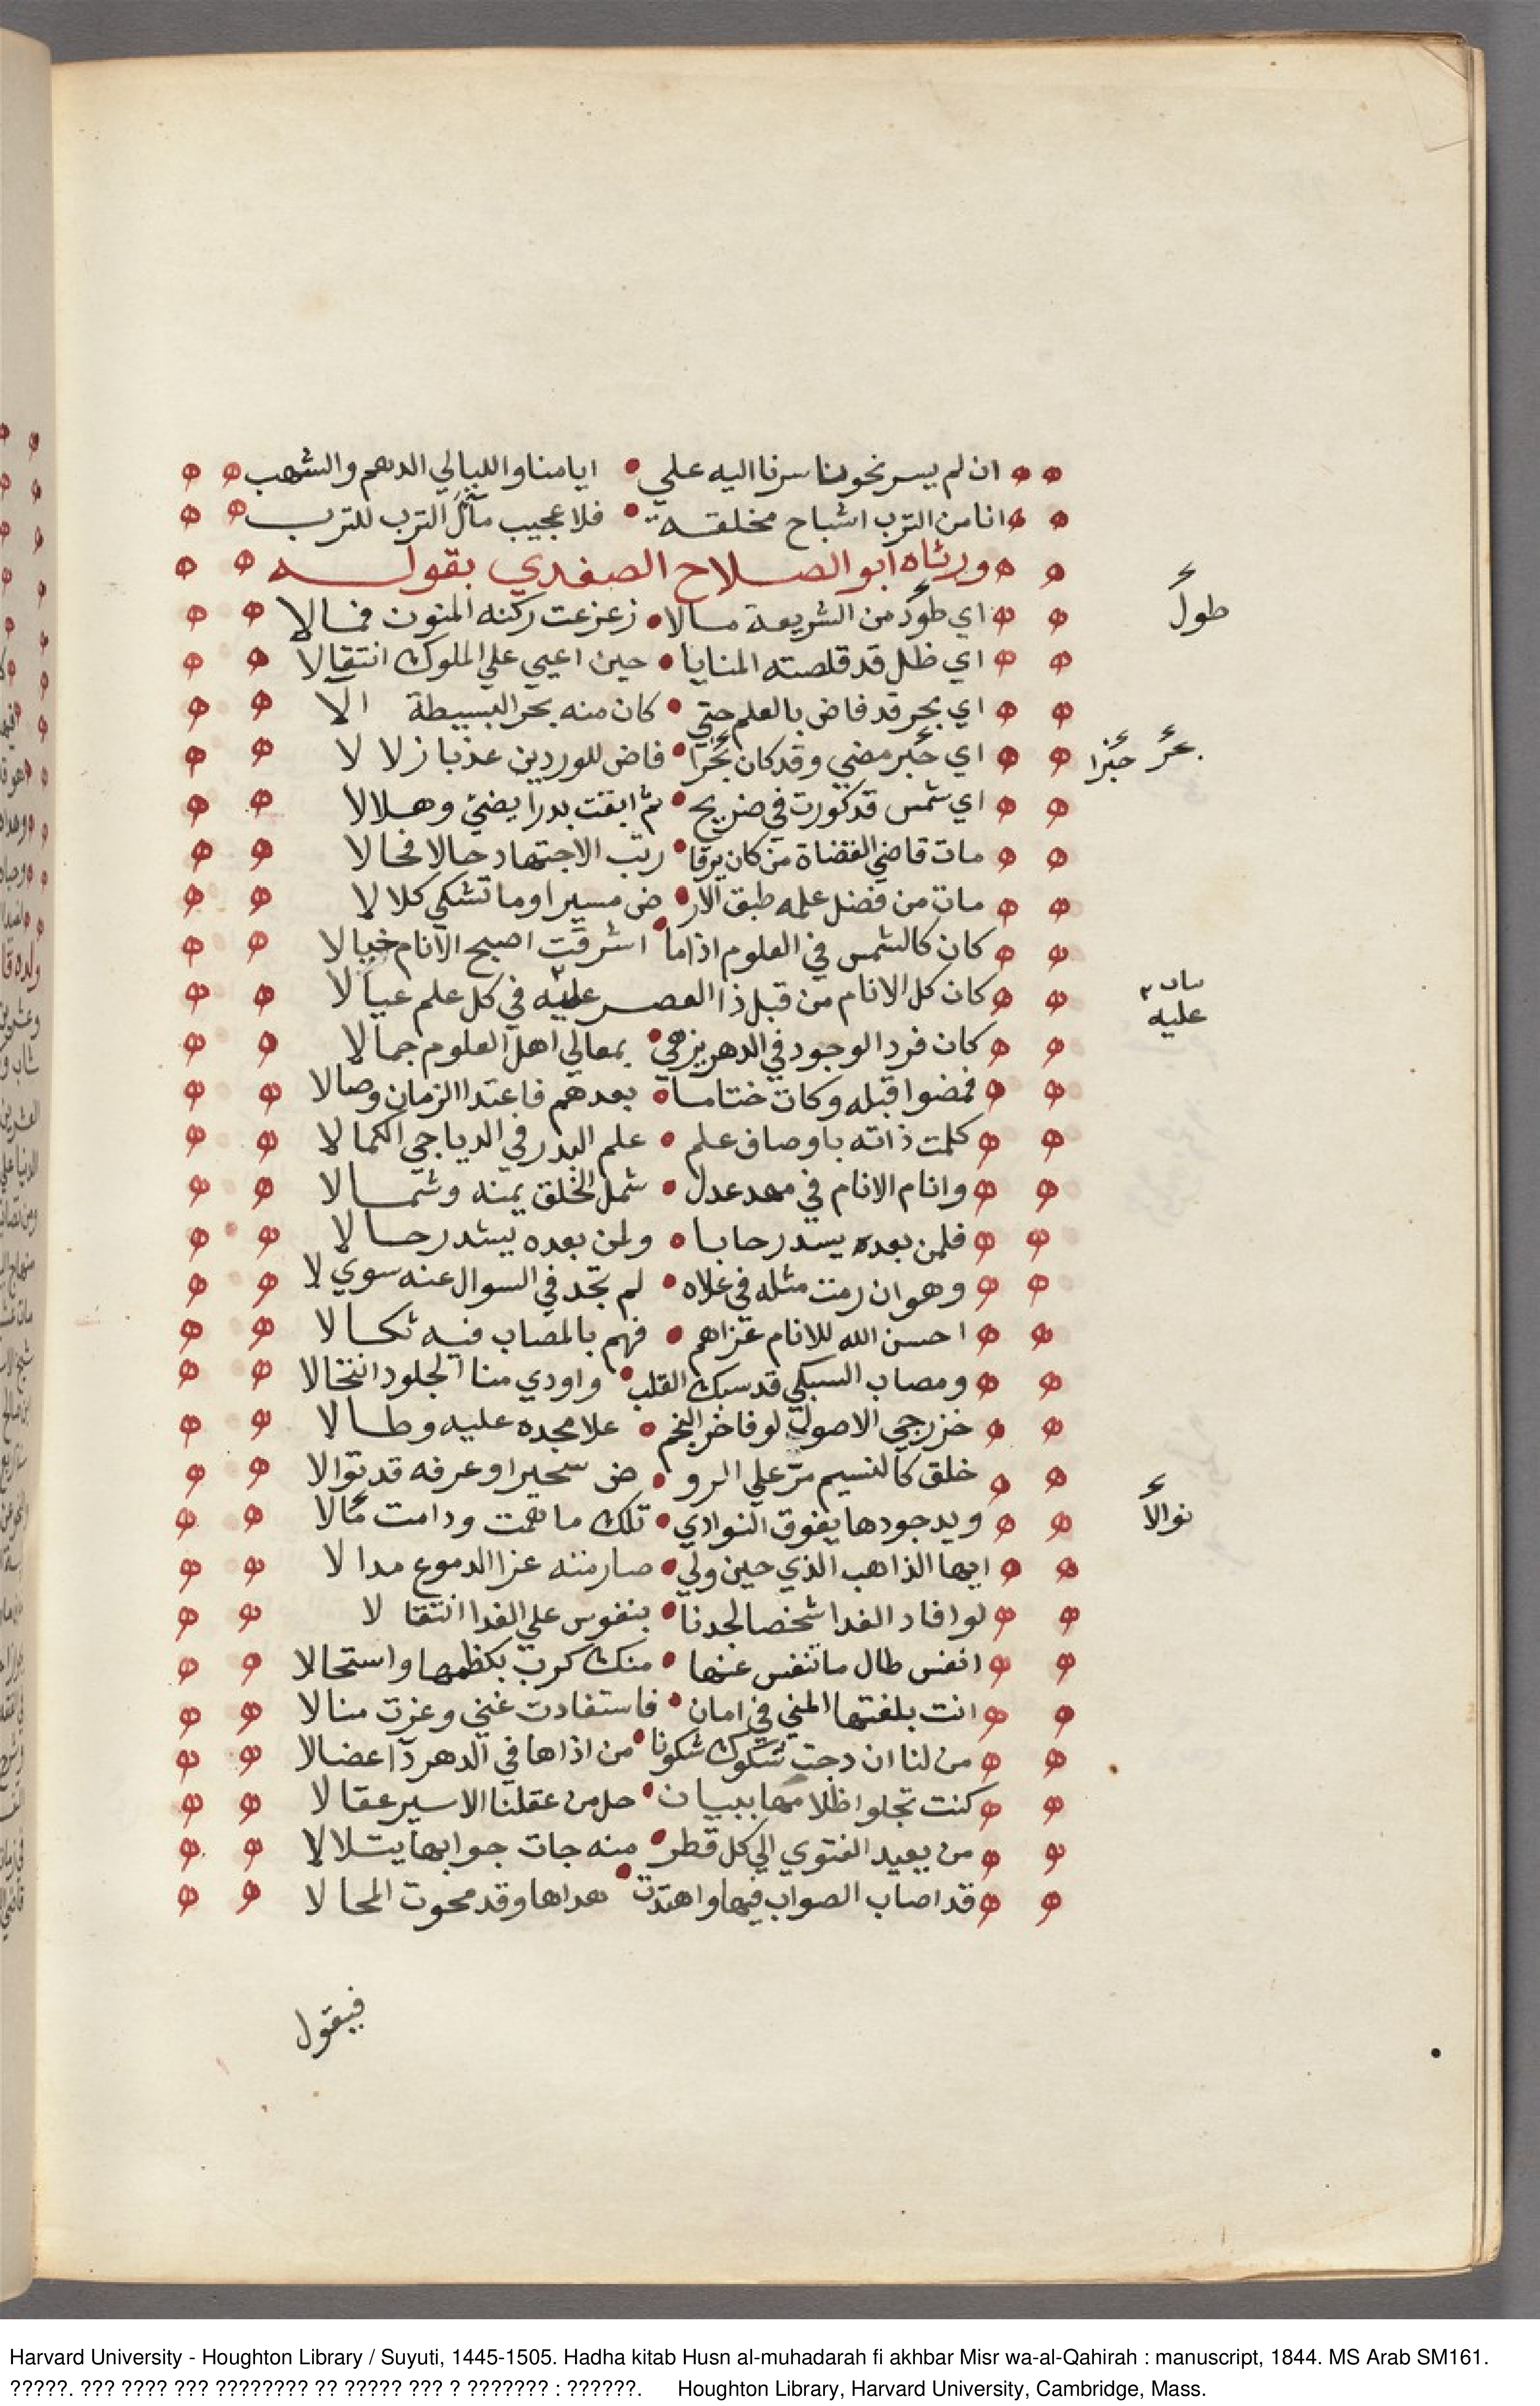 ان لم يسر نحونا سرنا اليه علي ايامنا والليالي الدهم والشهب
انا من الترب اشباح مخلقة فلا عجيب مآل الترب للترب
ورثاه ابو الصلاح الصفدي بقوله
اي طود من الشريعة مالا زعزعت ركنه المنون فمالا
طول
اي ظل قد قلصته المنايا حين اعيي علي الملوك انتقالا
اي بحر قد فاض بالعلم حتي كان منه بحر البسيطة الا
اي حبر مضي وقد كان بحرا فاض للوردين عذبا زلا لا
بحر حبرا
اي شمس قد كورت في ضريح ثم ابقت بدرا يضئ وهلالا
مات قاضي القضاة من كان يرقا رتب الاجتهاد حالا فحالا
مات من فضل علمه طبق الار ض مسيرا وما تشكي كلالا
كان كالشمس في العلوم اذا ما اشرقت اصبح الانام خيالا
كان كل الانام من قبل ذا العصر عليه في كل علم عيالا
عليه
كان فرد الوجود في الدهر يزهي بمعالي اهل العلوم جمالا
فمضوا قبله وكان ختاما بعدهم فاعتدا الزمان وصالا
كلمت ذاته باوصاف علم علم البدر في الدياجي الكمالا
وانام الانام في مهد عدل شمل الخلق يمنه وشمالا
فلمن بعده يسد رحابا ولمن بعده يشد رحالا
وهو ان رمت مثله في علاه لم تجد في السوال عنه سوي لا
احسن الله للانام عزاهم فهم بالمصاب فيه ثكالا
ومصاب السبكي قد سبك القلب واودي منا الجلود انتخالا
خزرجي الاصول لو فاخر النجم علا مجده عليه وطالا
خلق كالنسيم مر علي الرو ض سحيرا وعرفه قد توالا
ويد جودها يفوق النوادي تلك ما همت ودامت مالا
نوالا
ايها الذاهب الذي حين ولي صار منه عزا الدموع مدالا
لو افاد الفدا شخصا لجدنا بنفوس علي الفدا انتقا لا
انفس طال ما تنفس عنها منك كرب بكظمها واستحالا
انت بلغتها المني في امان فاستفادت غني وعزت منالا
من لنا ان دجت شكوك شكونا من اذاها في الدهر دا عضالا
كنت تجلوا ظلامها ببيان حل من عقلنا الاسير عقالا
من يعيد الفتوي الي كل قطر منه جات جوابها يتلالا
قد اصاب الصواب فيها واهتدت هداها وقد محوت المحالا
فيقول
Harvard University - Houghton Library / Suyuti, 1445-1505. Hadha kitab Husn al-muhadarah fi akhbar Misr wa-al-Qahirah : manuscript, 1844. MS Arab SM161.
?????. ??? ???? ??? ???????? ?? ????? ??? ? ??????? : ??????. Houghton Library, Harvard University, Cambridge, Mass.